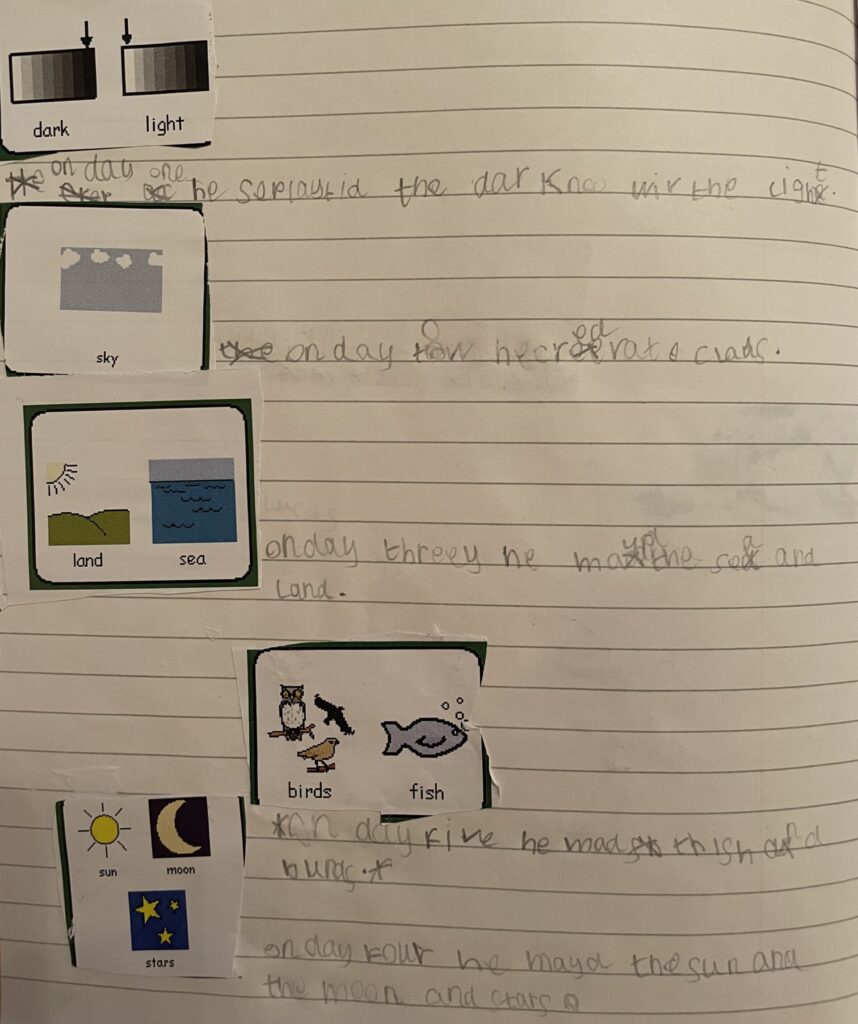 dark light
on day one
he seplaytid the darknee wir the light.
sky
on day tow he crerated clads.
land sea
on day threey he mayd the sea and
land.
birds fish
*on day five he mad thish and
burds.*
sun moon
stars
on day four he mayd the sun and
the moon and stars